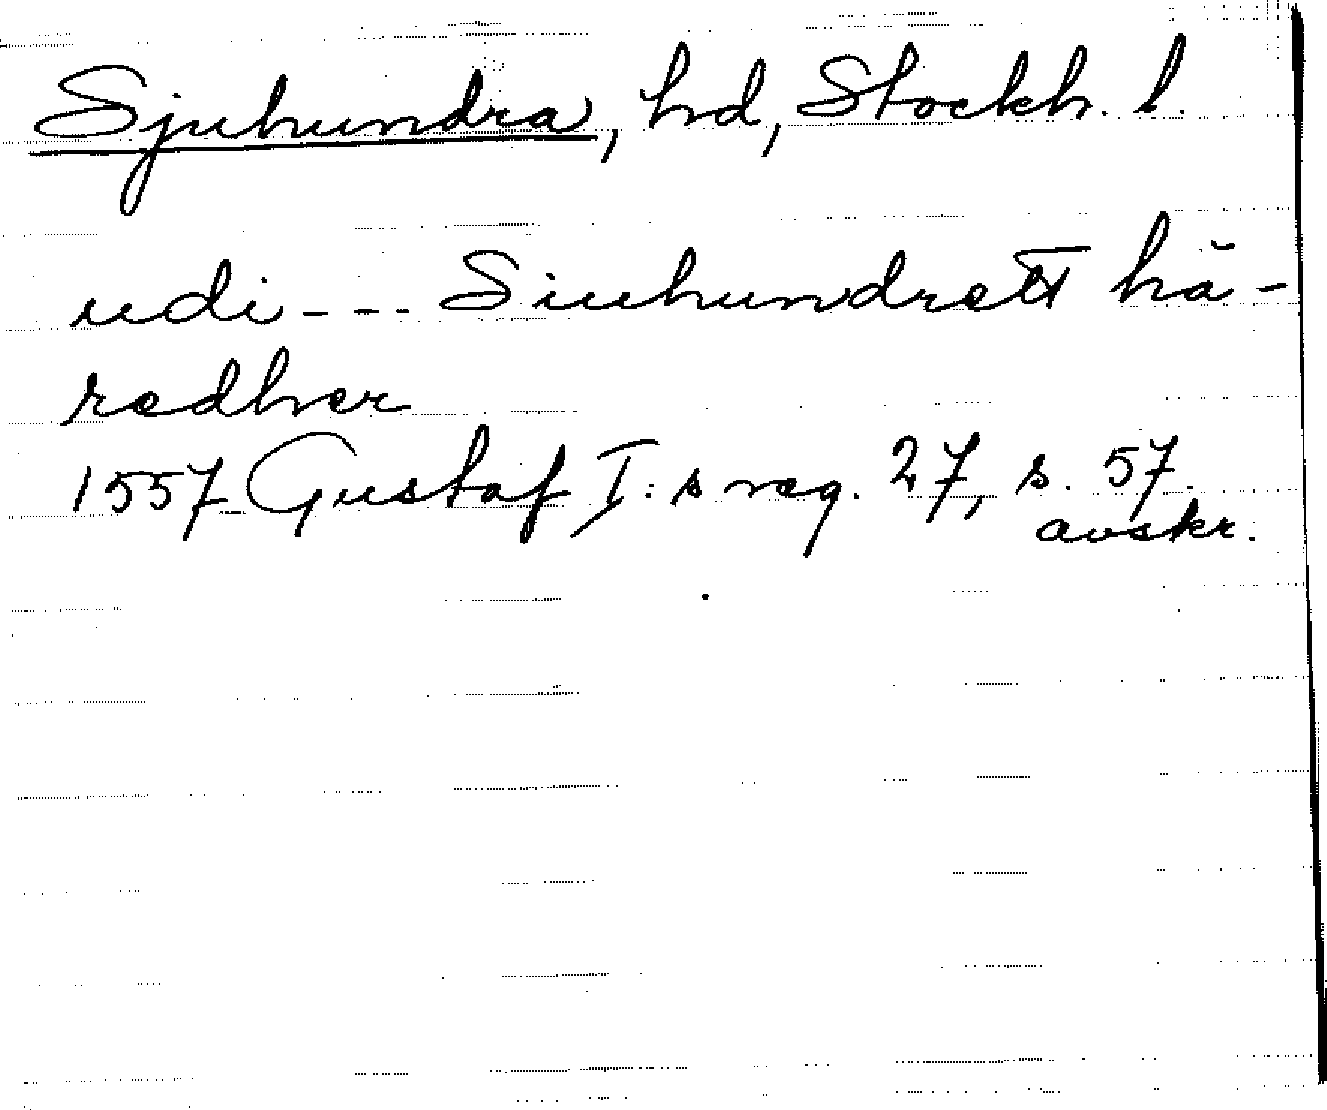 Sjuhundra, hd, Stockh. l.
udi--- Siuhundrett hä-
redher
1557 Gustaf I:s reg. 27, s. 57.
avskr.